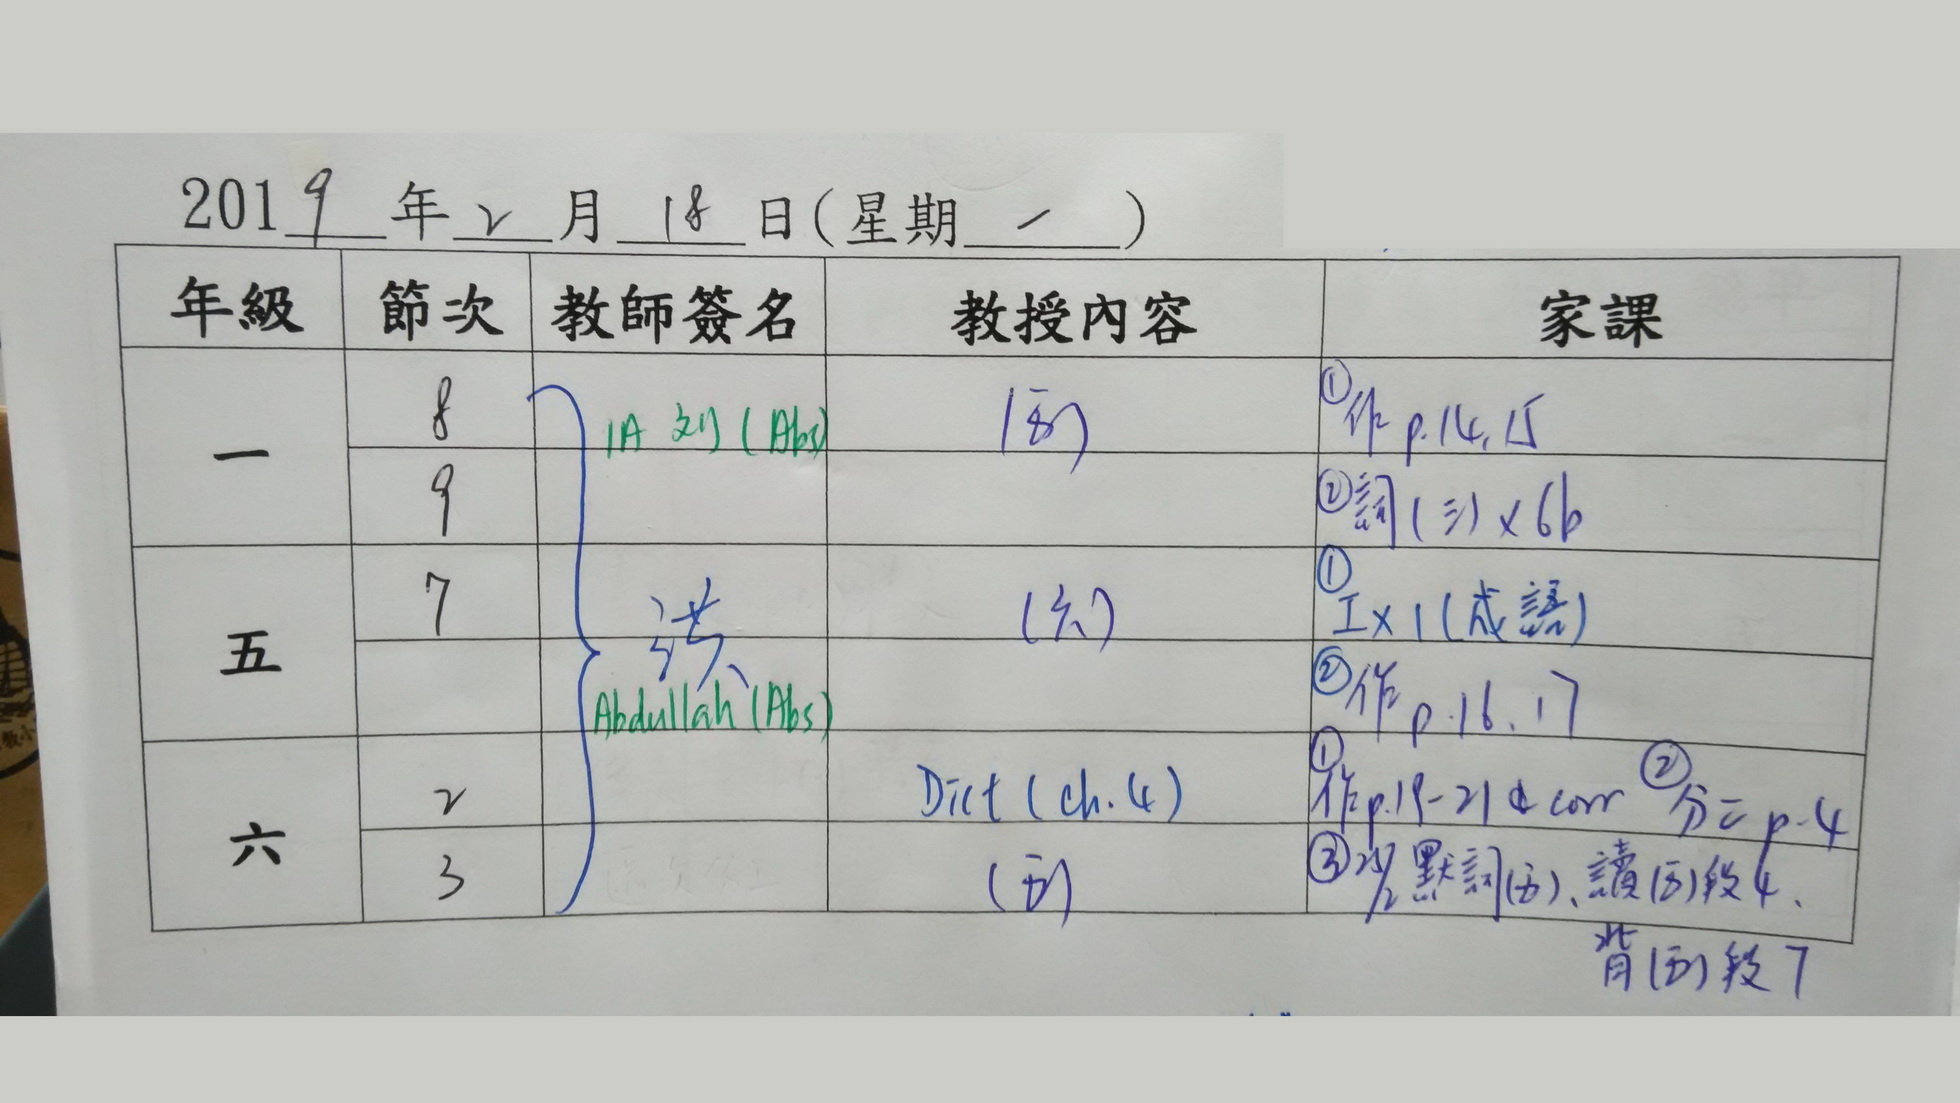 2019年2月18日(星期一)
年級 節次 教師簽名 教授內容 家課
一 8 1A 刘 (Abs) (五) ①作 p.14, 15
9 ②詞(三)x6b
五 7 洪 (六) ①工x1(成語)
Abdullah (Abs) ②作 p.16, 17
六 2 Dict (ch.4) ①作p.19-21 & corr ②分二 p.4
3 (五) ③25/2 默詞(五)、讀(五)段4、
背(五)段7